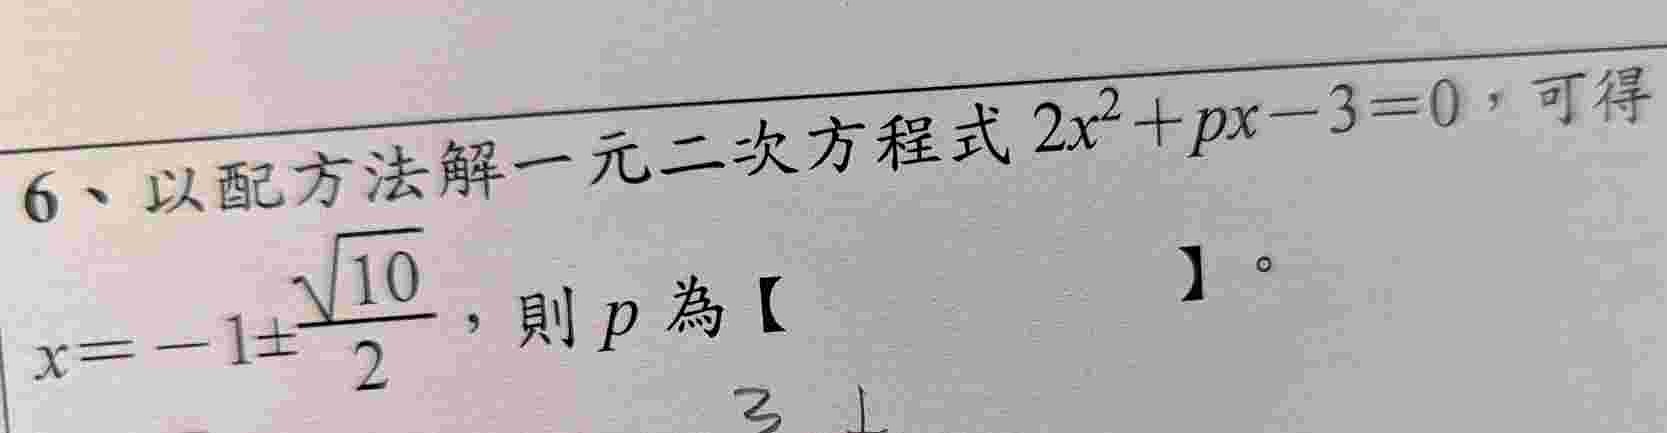 6、以配方法解一元二次方程式 2x²+px−3=0，可得
x=−1±√10/2，則 p 為【 】。
3